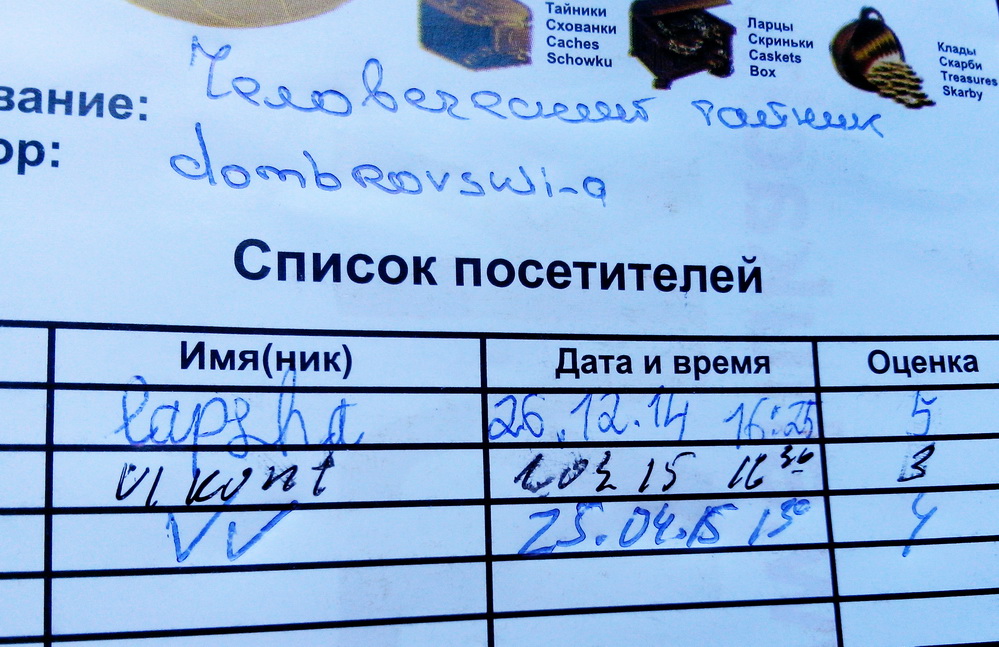 Тайники
Схованки
Caches
Schowku
Ларцы
Скриньки
Caskets
Box
Клады
Скарби
Treasures
Skarby
вание: Человеческий тайник
ор: dombrovswi-a
Список посетителей
Имя(ник) Дата и время Оценка
lapsha 26.12.14 16:25 5
vikont 15 16 30 3
VV 25.04.15 4